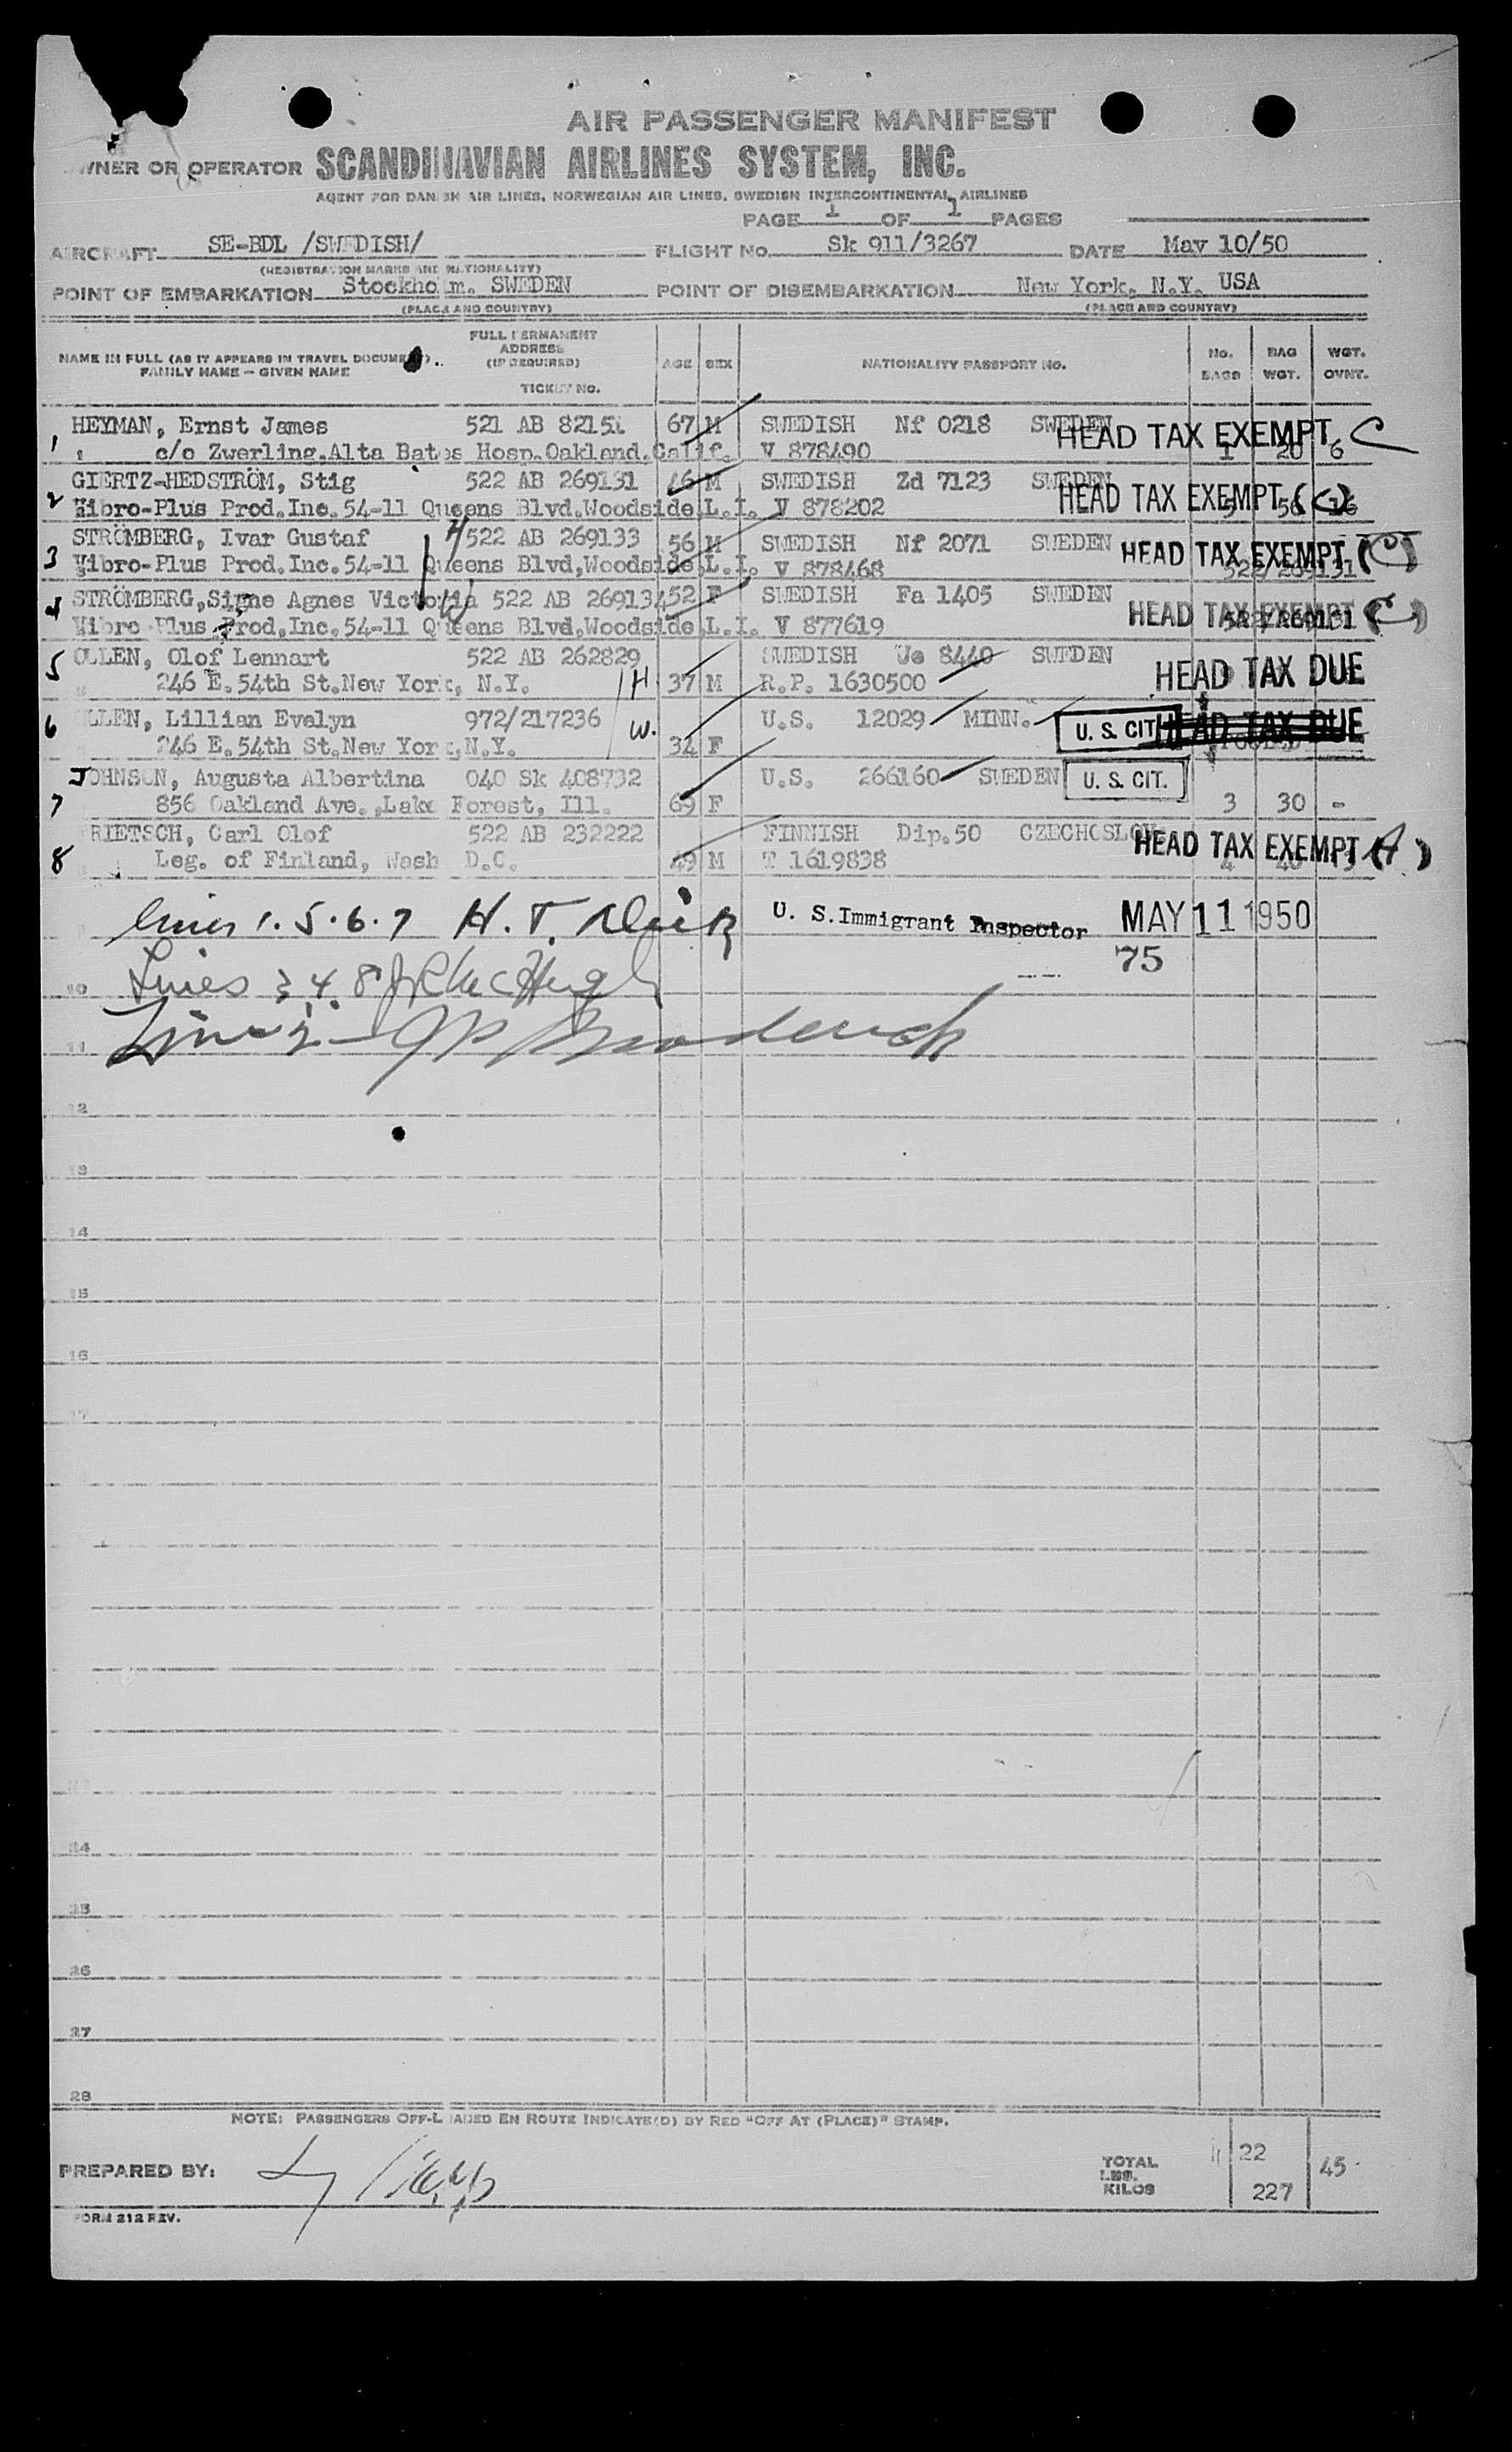 AIR PASSENGER MANIFEST
OWNER OR OPERATOR SCANDINAVIAN AIRLINES SYSTEM, INC.
AGENT FOR DANISH AIR LINES, NORWEGIAN AIR LINES, SWEDISH INTERCONTINENTAL AIRLINES
PAGE 1 OF 1 PAGES
AIRCRAFT SE-BDL /SWEDISH/ FLIGHT No. Sk 911/3267 DATE May 10/50
(REGISTRATION MARKS AND NATIONALITY)
POINT OF EMBARKATION Stockholm. SWEDEN POINT OF DISEMBARKATION New York. N.Y. USA
(PLACE AND COUNTRY) (PLACE AND COUNTRY)
NAME IN FULL (AS IT APPEARS IN TRAVEL DOCUMENT) FAMILY NAME — GIVEN NAME FULL PERMANENT ADDRESS (IF REQUIRED) TICKET No. AGE SEX NATIONALITY PASSPORT NO. No. BAGS BAG WGT. WGT. OVWT.
1 HEYMAN, Ernst James 521 AB 82151 67 M SWEDISH Nf 0218 SWEDEN HEAD TAX EXEMPT C
c/o Zwerling.Alta Bates Hosp.Oakland.Calif. V 878490 1 20 6
2 GIERTZ-HEDSTRÖM, Stig 522 AB 269131 46 M SWEDISH Zd 7123 SWEDEN HEAD TAX EXEMPT (C)
Vibro-Plus Prod.Inc.54-11 Queens Blvd.Woodside,L.I. V 878202 56 16
3 STRÖMBERG, Ivar Gustaf H 522 AB 269133 56 M SWEDISH Nf 2071 SWEDEN HEAD TAX EXEMPT (C)
Vibro-Plus Prod.Inc.54-11 Queens Blvd,Woodside,L.I. V 878468 522/269131
4 STRÖMBERG,Signe Agnes Victoria W 522 AB 269134 52 F SWEDISH Fa 1405 SWEDEN HEAD TAX EXEMPT (C)
Vibro-Plus Prod,Inc.54-11 Queens Blvd,Woodside,L.I. V 877619 522/269131
5 OLLEN, Olof Lennart 522 AB 262829 SWEDISH Ue 8440 SWEDEN HEAD TAX DUE
246 E.54th St.New York, N.Y. H 37 M R.P. 1630500
6 OLLEN, Lillian Evelyn 972/217236 W. U.S. 12029 MINN. U. S. CIT. HEAD TAX DUE
246 E.54th St.New York,N.Y. 34 F POOLED
7 JOHNSON, Augusta Albertina 040 Sk 408732 U.S. 266160 SWEDEN U. S. CIT.
856 Oakland Ave.,Lake Forest, Ill. 69 F 3 30 -
8 RIETSCH, Carl Olof 522 AB 232222 FINNISH Dip.50 CZECHOSLOV. HEAD TAX EXEMPT (A)
Leg. of Finland, Wash D.C. 49 M T 1619838 4
lines 1. 5. 6. 7 H. T. U. S. Immigrant Inspector MAY 11 1950
75
10 Lines 3 4. 8 McHugh
11 Line 2 — Broderick
12
13
14
15
16
17
24
25
26
27
28
NOTE: PASSENGERS OFF-LOADED EN ROUTE INDICATE(D) BY RED "OFF AT (PLACE)" STAMP.
PREPARED BY: TOTAL LBS. KILOS 22 227 45
FORM 212 REV.